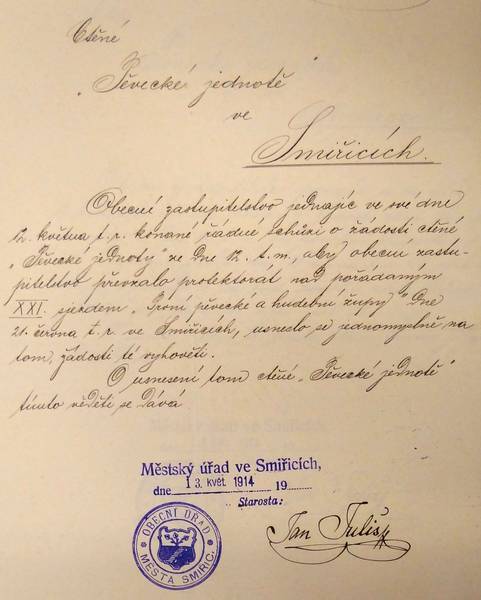 Ctěné
"Pěvecké jednotě"
ve
Smiřicích.
Obecní zastupitelstvo jednajíc ve své dne
12. května t. r. konané řádné schůzi o žádosti ctěné
"Pěvecké jednoty" ze dne 12. t. m., aby obecní zastu-
pitelstvo převzalo protektorát nad pořádaným
XXI. sjezdem "První pěvecké a hudební župy" dne
21. června t. r. ve Smiřicích, usneslo se jednomyslně na
tom, žádosti té vyhověti.
O usnesení tom ctěné "Pěvecké jednotě"
tímto věděti se dává
Městský úřad ve Smiřicích,
dne 13. květ 1914 19
Starosta:
Jan
OBECNÍ ÚŘAD
MĚSTA SMIŘIC.